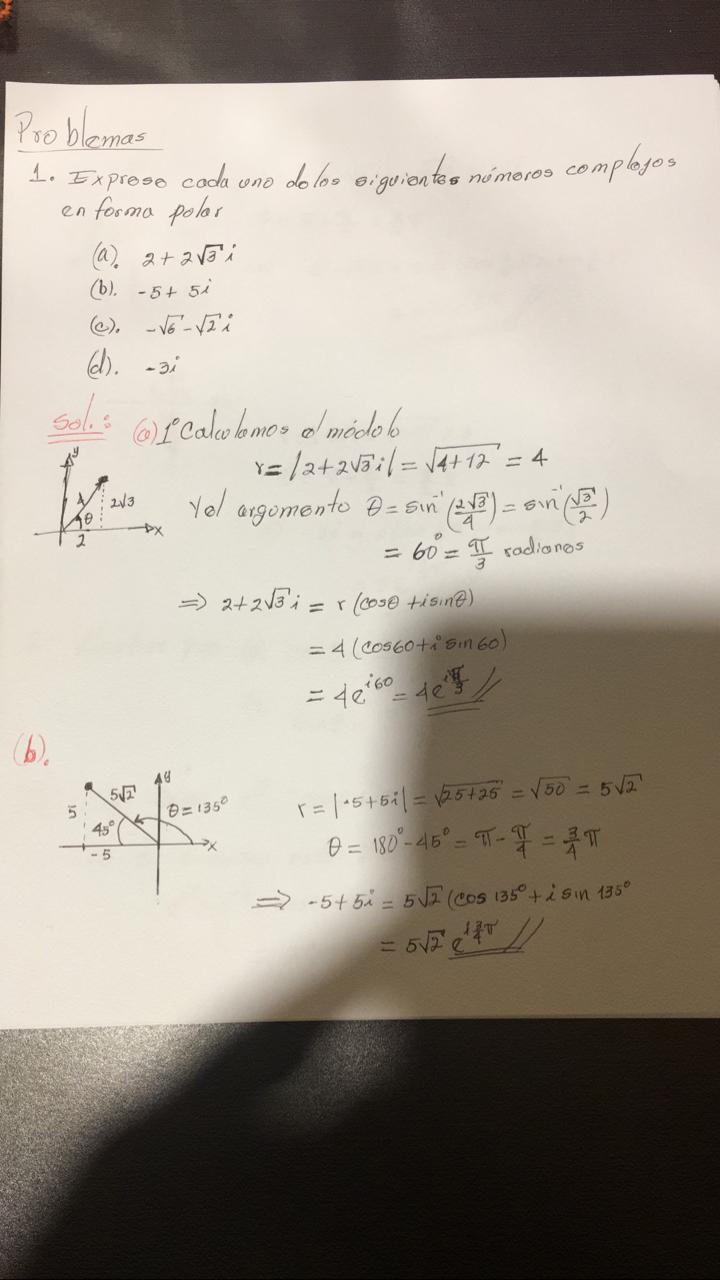 Problemas
1. Exprese cada uno de los siguientes números complejos
en forma polar
(a). 2 + 2√3 i
(b). -5 + 5i
(c). -√6 - √2 i
(d). -3i
Sol.: (a) 1° Calculamos el módulo
r = |2+2√3 i| = √(4+12) = 4
Y el argumento θ = sin⁻¹(2√3/4) = sin⁻¹(√3/2)
= 60° = π/3 radianes
y
4
θ
2√3
2
x
⇒ 2+2√3 i = r (cosθ + i sinθ)
= 4 (cos60 + i sin 60)
= 4e^(i60) = 4e^(iπ/3)
(b).
y
5√2
θ = 135°
5
45°
-5
x
r = |-5+5i| = √(25+25) = √50 = 5√2
θ = 180° - 45° = π - π/4 = 3/4 π
⇒ -5+5i = 5√2 (cos 135° + i sin 135°
= 5√2 e^(i 3/4 π)